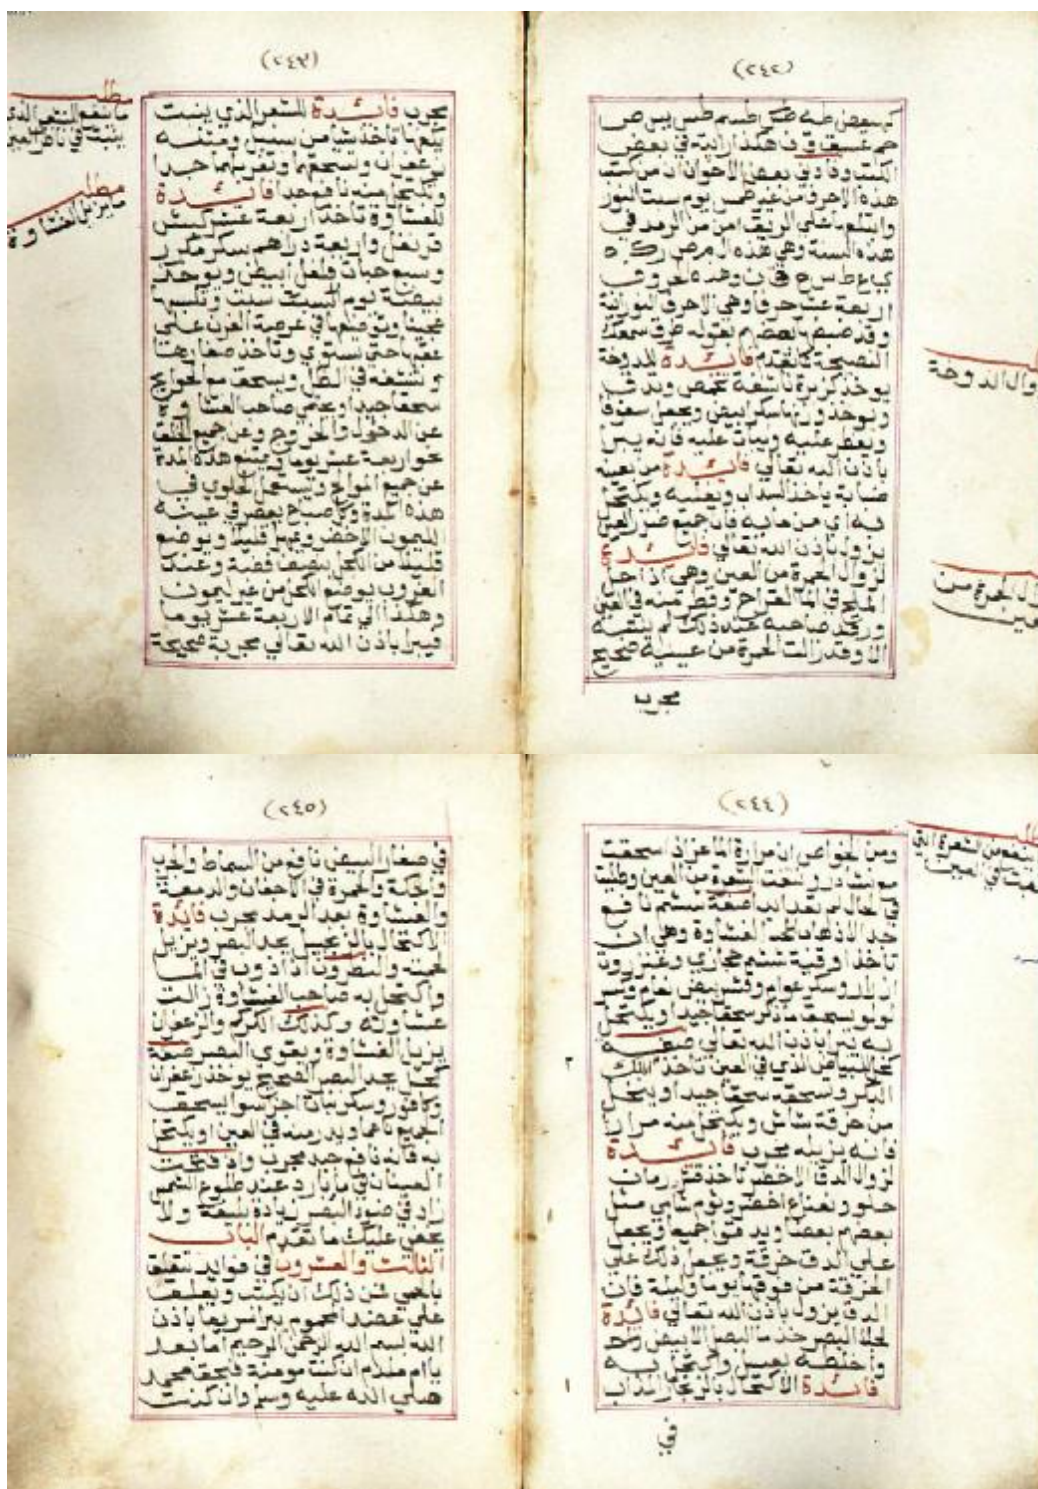 (٢٤٢)
كهيعص طه طسم طس يس ص
حم عسق ق ن هكذا رايته في بعض
الكتب وفادني بعض الاخوان ان من كتب
هذه الاحرف من غير طمس يوم سبت النور
وابتلعها على الريق امن من الرمد في
هذه السنة وهي هذه ال م ص ر ك ه
ي ع ط س ح ق ن وهذه الحروف
اربعة عشر حرفا وهي الاحرف النورانية
وقد ضبطها بعضهم بقوله طرق سمعك
النصيحة كما تقدم فائدة للدوخة
يوخذ كزبرة ناشفة تحمص وتدق
ويوخذ وزنها سكر ابيض ويجعل سفوفا
ويفطر عليه ويبات عليه فانه يبرا
باذن الله تعالى فائدة من بعينه
ضبابة ياخذ السداب ويغليه ويكتحل
به اي من مايه فان جميع ضرر العين
يزول باذن الله تعالى فائدة
لزوال الحمرة من العين وهي اذا حل
الملح في الما القراح وقطر منه في العين
ورقد صاحبه عند ذلك لم ينتبه
الا وقد زالت الحمرة من عينيه صحيح
مجرب
وال الدوخة
زوال الحمرة من
العين
(٢٤٣)
مطلب
ما ينفع الشعر الذي
ينبت في باطن العين
مطلب
ما يزيل الغشاوة
مجرب فائدة للشعر الذي ينبت
تاخذ شيا من سنبل ومثله
زعفران وتسحقهما وتغربلهما جيدا
وتكتحل منه نافع جدا فائدة
للغشاوة تاخذ اربعة عشر كبش
قرنفل واربعة دراهم سكر مكرر
وسبع حبات فلفل ابيض ويوخذ
بيضة يوم السبت سبت وتلبسها
عجينا وتوضعها في عرصة الفرن على
عقبها حتى تستوي وتاخذ صفارها
وتنشفه في الظل ويسحق مع الحوايج
سحقا جيدا ويحمى صاحب الغشاوة
عن الدخول والخروج وعن جميع الخلق
نحو اربعة عشر يوما ويمتنع هذه المدة
عن جميع الموالح ويستعمل الحلوى في
هذه المدة وكل صباح يعصر في عينيه
الليمون الاخضر ويمهل قليلا ويوضع
قليلا من الكحل فضة وعند
الغروب يوضع الكحل من غير ليمون
وهكذا الى تمام الاربعة عشر يوما
فيبرا باذن الله تعالى مجربة صحيحة
(٢٤٤)
ينفع من الشعرة التي
تنبت في العين
ومن الخواص ان مرارة الماعز اذا سحقت
مع نشادر ونتفت الشعرة من العين وطليت
في الحال لم تعد ابدا صفة ششم نافع
جيد الاذهاب الغشاوة وهي ان
تاخذ اوقية ششم حجازي وعنزروت
وسكر عوام وقشر بيض نعام وقشر
لولو يسحق ما ذكر سحقا جيدا ويكتحل
به تبرا باذن الله تعالى صفة
كحل البياض الذي في العين تاخذ اللك
الذكر وتسحقه سحقا جيدا وينخل
من خرقة شاش ويكتحل منه مرارا
فانه يزيله مجرب فائدة
لزوال الدق الاخضر تاخذ قشر رمان
حلو ونعناع اخضر وثوم شامي مثل
بعضهم بعضا ويدقوا جميعا ويجعل
على الدق خرقة ويجعل ذلك على
الخرقة من فوقها يوما وليلة فان
الدق يزول باذن الله تعالى فائدة
لجلا البصر خذ ما البصل الابيض
واخلطه بعسل واكتحل به
فائدة الاكتحال بالزنجار المذاب
في
(٢٤٥)
في صفار البيض نافع من السماط والجرب
والحكة والحمرة في الاجفان والدمعة
والغشاوة بعد الرمد مجرب فائدة
الاكتحال بالزنجبيل يحد البصر ويزيل
والنطرون اذا ذوب في الما
واكتحل به صاحب الغشاوة زالت
غشاوته وكذلك الكركم والزعفران
يزيل الغشاوة ويقوي البصر صفة
كحل يحد البصر الصحيح يوخذ زعفران
وكافور وسكر نبات اجزا سوا يسحق
الجميع ناعما ويذر منه في العين او يكتحل
به فانه نافع جيد مجرب واذا فتحت
العينان في ما بارد عند طلوع الشمس
زاد في ضوء البصر زيادة بليغة ولا
يخفى عليك ما تقدم الباب
الثالث والعشرون في فوايد تتعلق
بالحمى فمن ذلك ان يكتب ويعلق
على عضد المحموم يبرا سريعا باذن
الله بسم الله الرحمن الرحيم اما بعد
يا ام ملدم ان كنت مومنة فبحق محمد
صلى الله عليه وسلم وان كنت